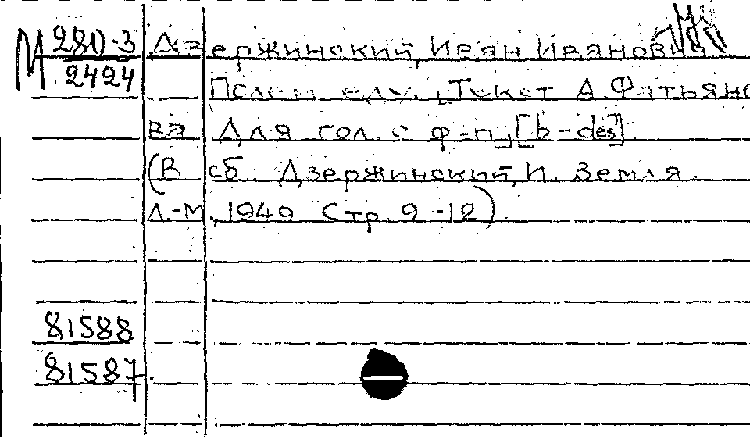 М 280-3 Дзержинский, Иван Иванович.
2424
Полем иду. Текст А. Фатьяно
ва Для гол. с ф-п. [b-des]
(В сб. Дзержинский, И. Земля.
Л.-М., 1949 Стр. 9-12).
81588
81587